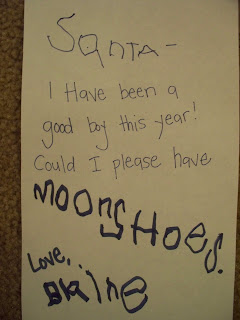 Santa-
I Have been a
good boy this year!
Could I please have
MOONSHOES.
Love,
Blaine